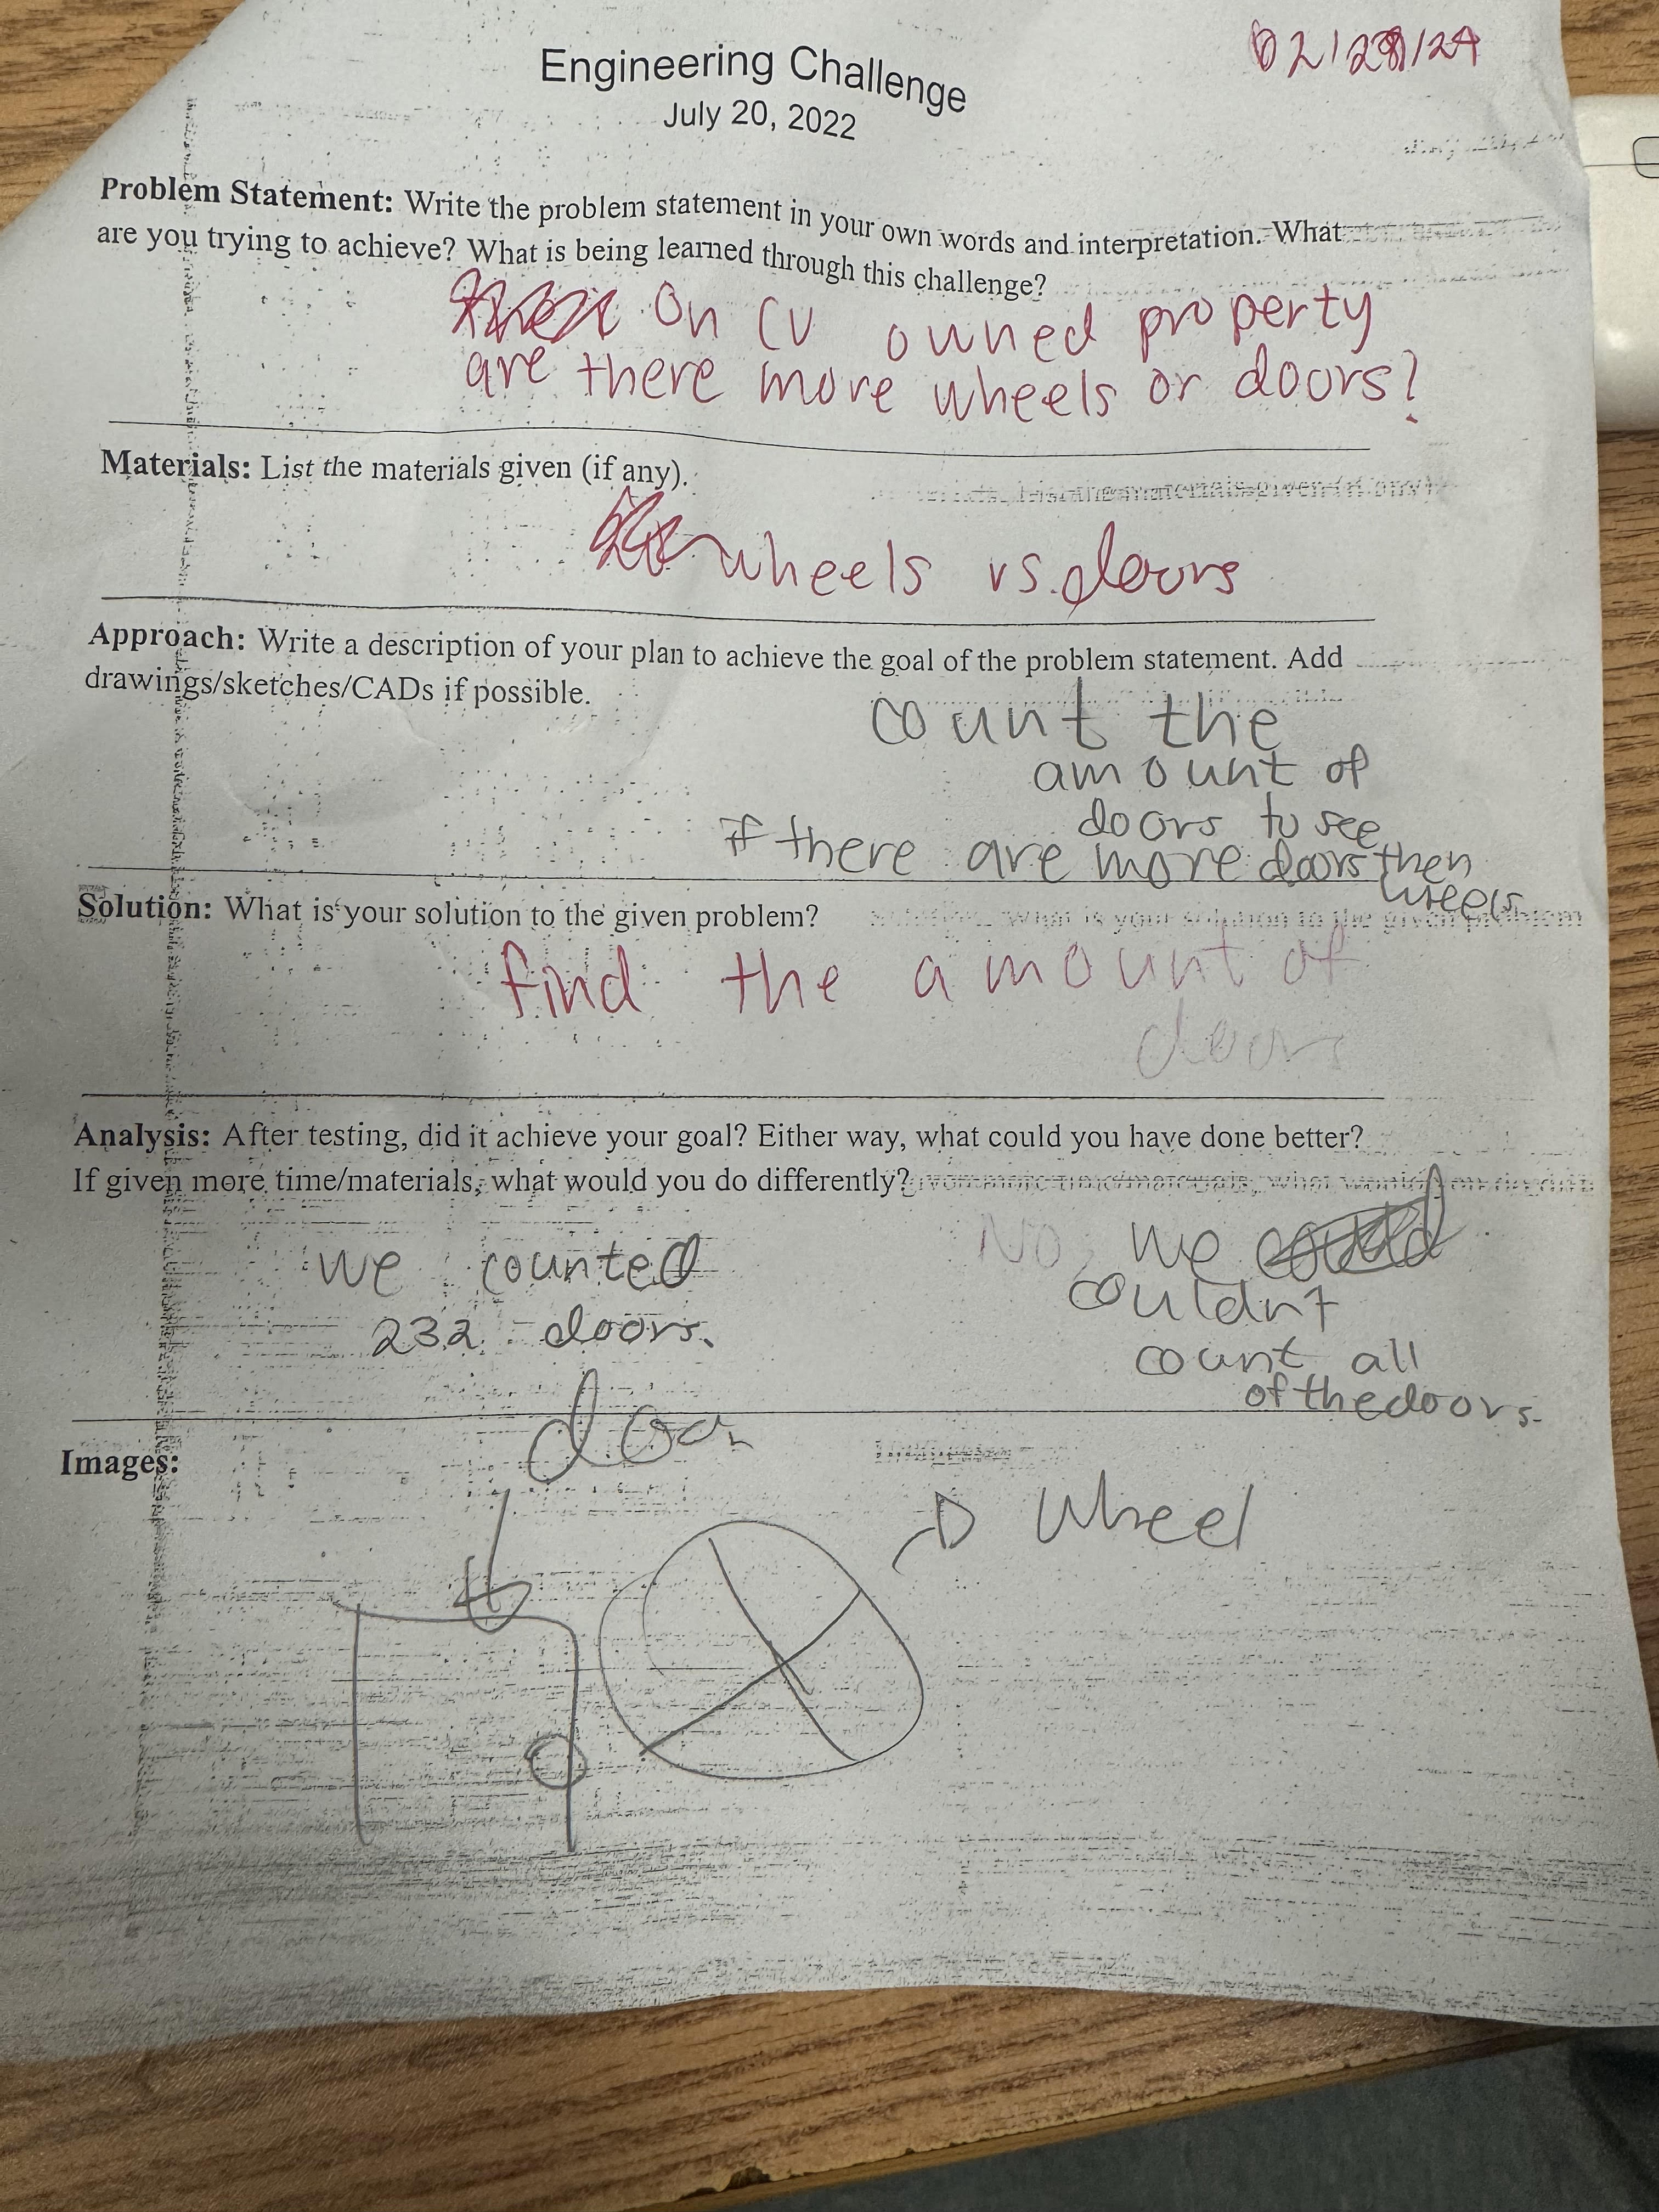 Engineering Challenge
July 20, 2022
Problem Statement: Write the problem statement in your own words and interpretation. What
are you trying to achieve? What is being learned through this challenge?
On CV owned property
are there more wheels or doors?
Materials: List the materials given (if any).
wheels vs. doors
Approach: Write a description of your plan to achieve the goal of the problem statement. Add
drawings/sketches/CADs if possible.
count the
amount of
doors to see
if there are more doors then
wheels
Solution: What is your solution to the given problem?
find the amount of
doors
Analysis: After testing, did it achieve your goal? Either way, what could you have done better?
If given more time/materials, what would you do differently?
we counted
232 doors.
No, we
couldnt
count all
of the doors.
Images:
door
Wheel